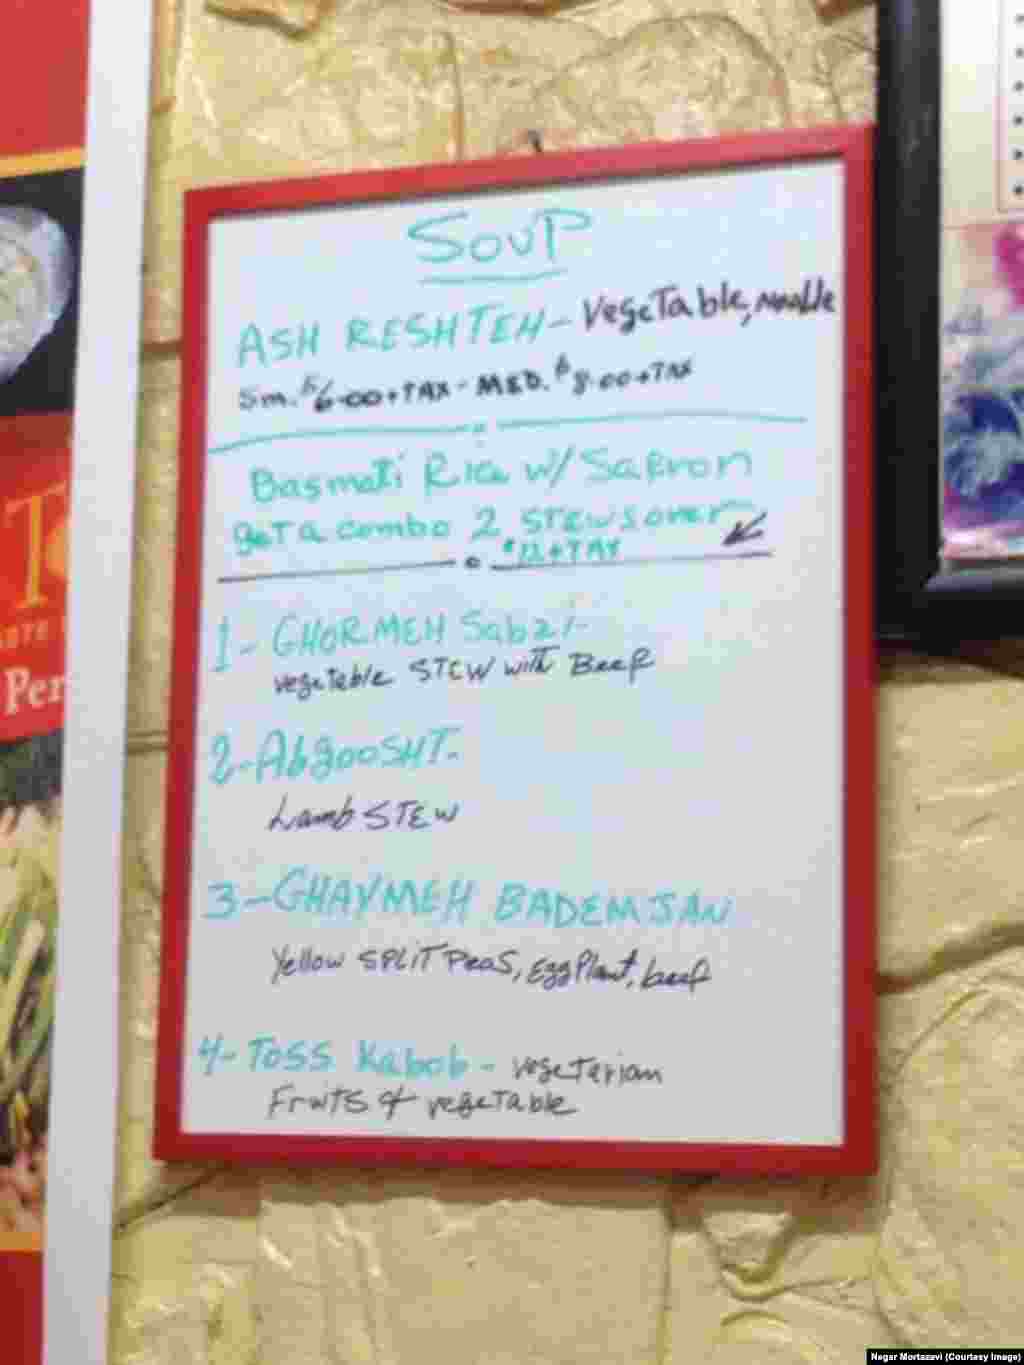 SOUP
ASH RESHTEH - vegeTable, Noodle
Sm. $6.00 + TAX - MED. $8.00 + TAX
Basmati Rice w/ Safron
geT a combo 2 STEWS over
$12 + TAX
1 - GHORMEH Sabzi -
vegeTable STEW with Beef
2 - AbgooSHT -
Lamb STEW
3 - GHAYMEH BADEMJAN
Yellow SPLIT Peas, EggPlant, beef
4 - TOSS Kabob - vegeTarian
FruiTS & vegeTable
Per
Negar Mortazavi (Courtesy Image)